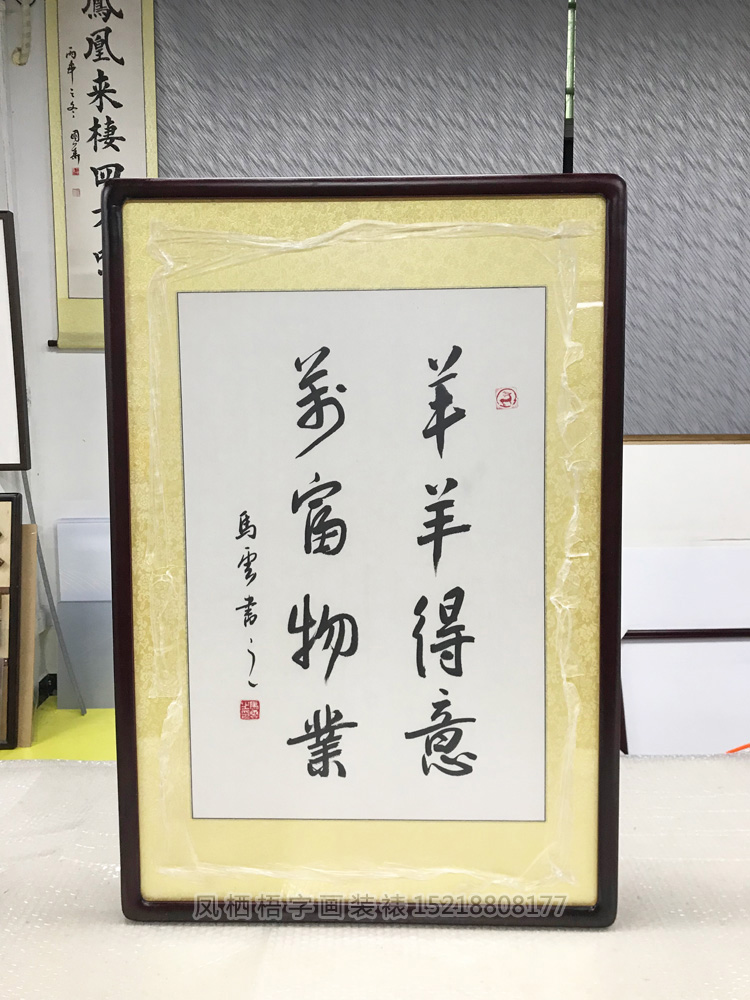 鳳凰来棲四
羊羊得意
萬富物業
馬雲書
凤栖梧字画装裱 15218808177